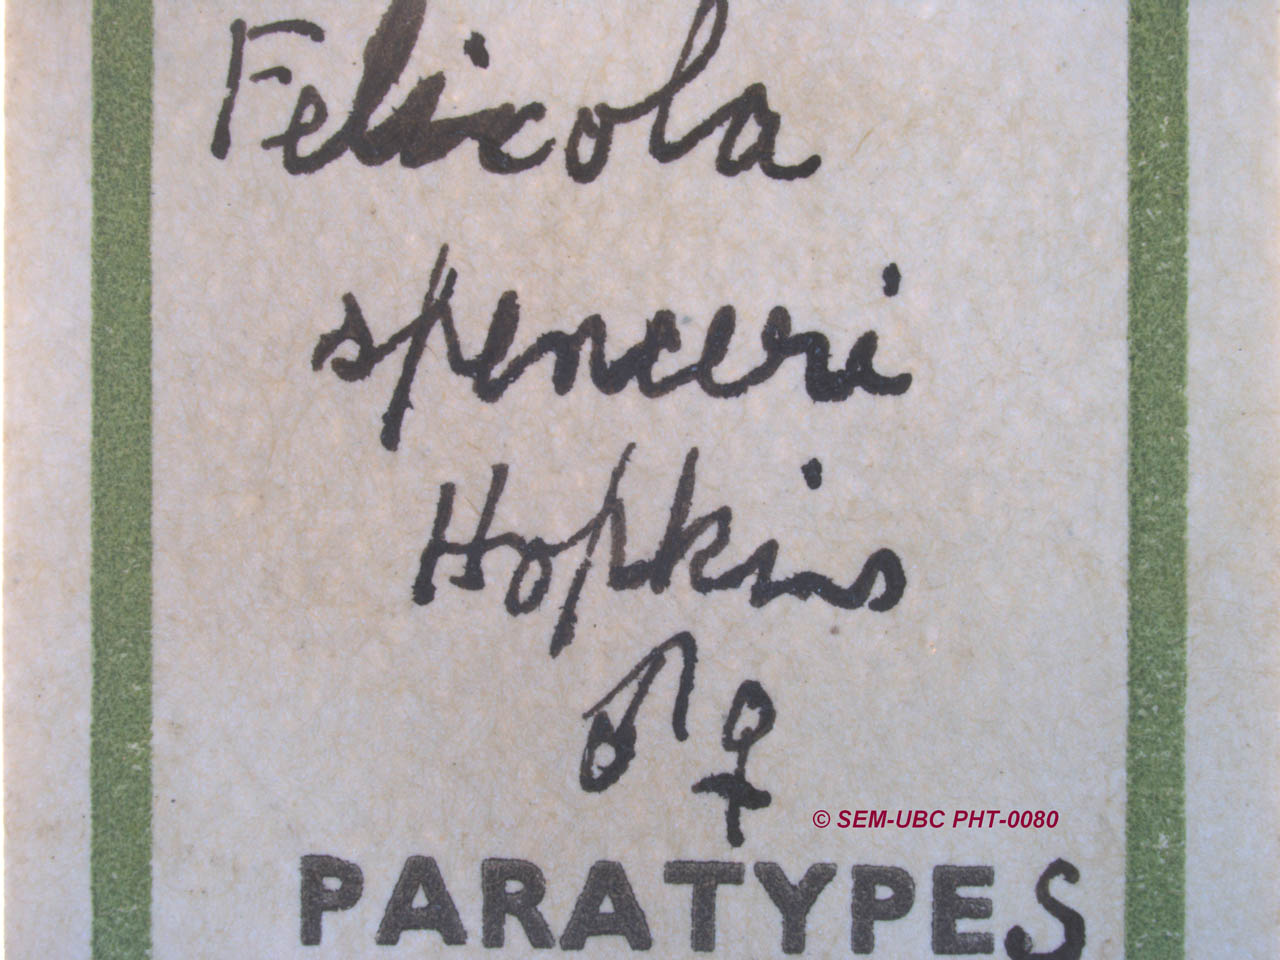 Felicola
spenceri
Hopkins
♂ ♀
© SEM-UBC PHT-0080
PARATYPES